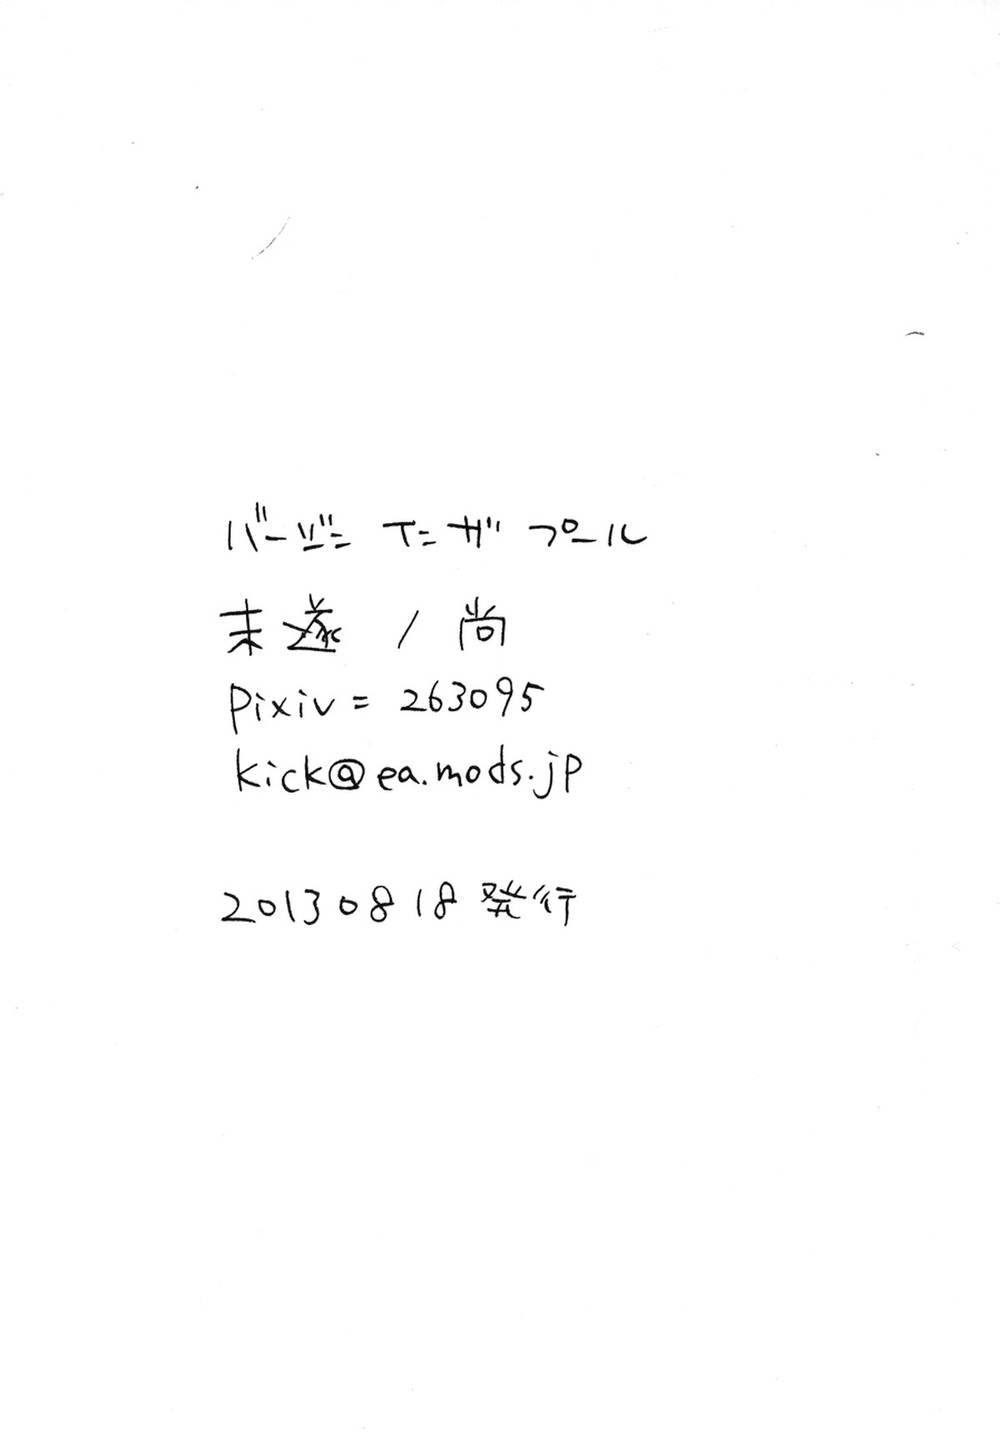 プール
未遂 / 尚
pixiv = 263095
kick@ea.mods.jp
20130818発行